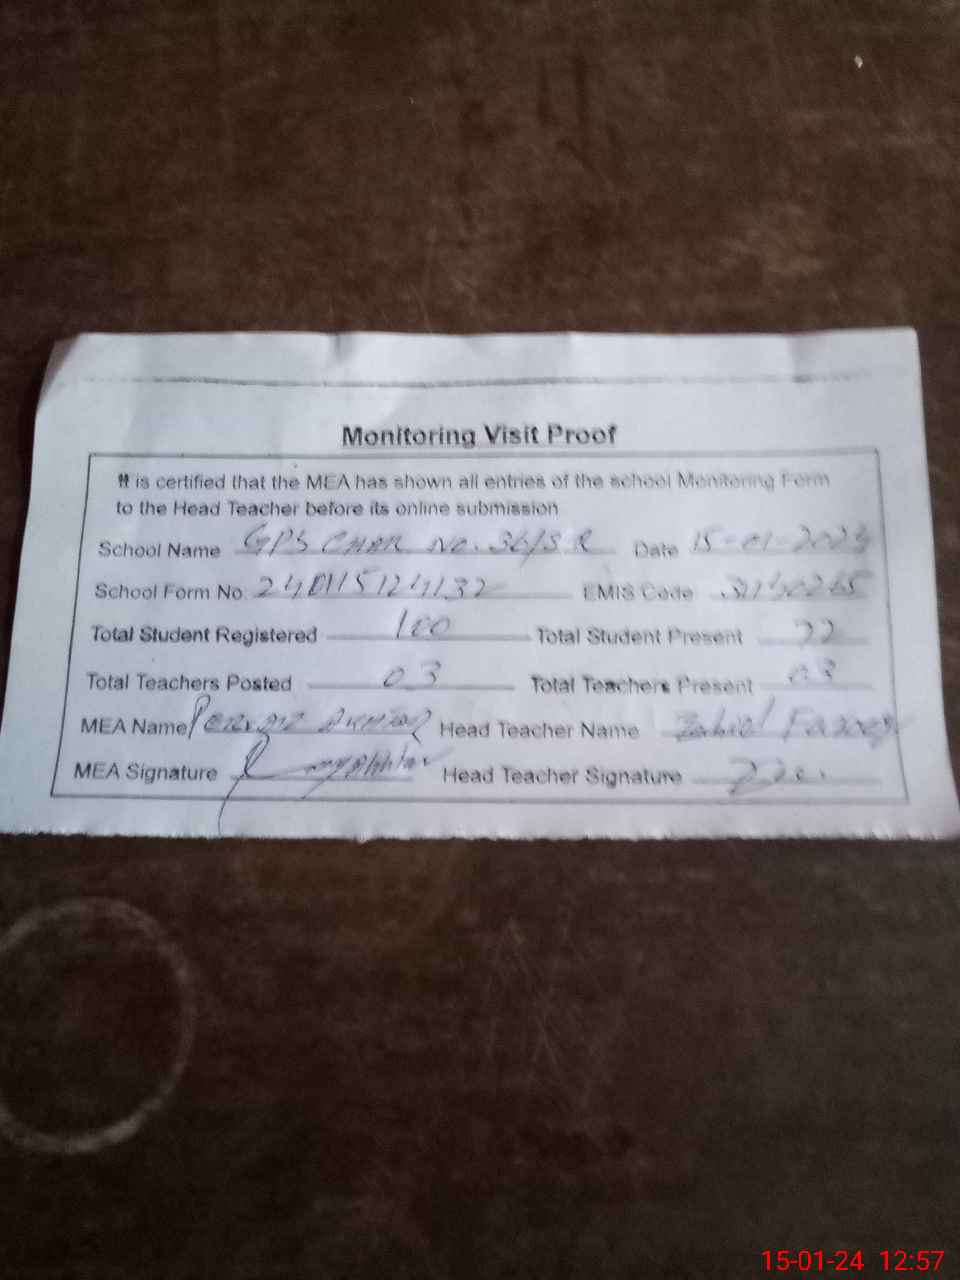 Monitoring Visit Proof
It is certified that the MEA has shown all entries of the school Monitoring Form
to the Head Teacher before its online submission
School Name GPS CHAK NO. 36/3 R Date 15-01-2024
School Form No. EMIS Code
Total Student Registered 100 Total Student Present
Total Teachers Posted 03 Total Teachers Present 03
MEA Name Pervaiz Akhtar Head Teacher Name Zahid Farooq
MEA Signature Head Teacher Signature
15-01-24 12:57